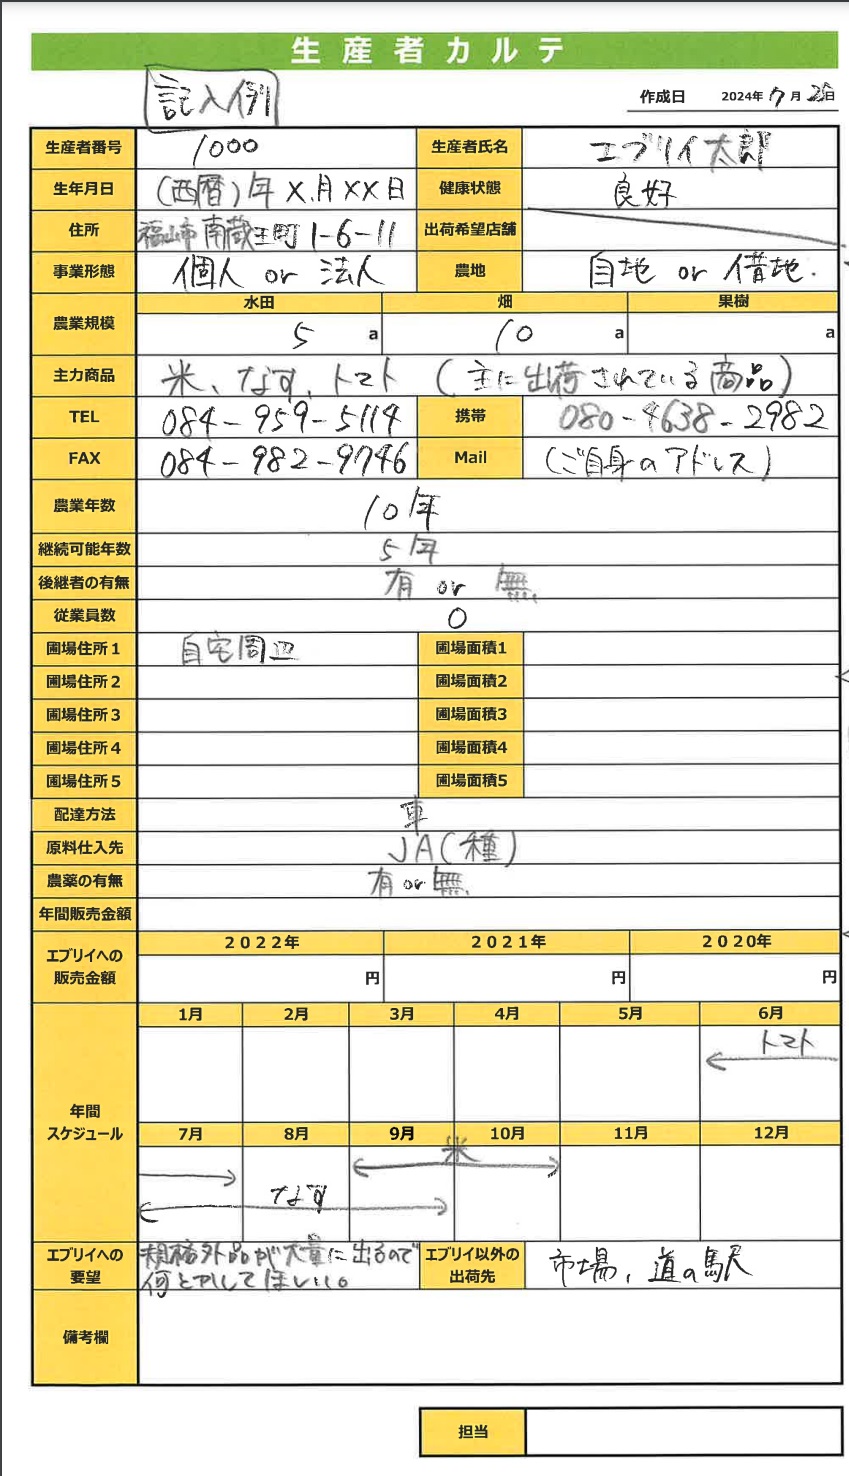 生産者カルテ
記入例
作成日 2024年 7月 25日
生産者番号 1000 生産者氏名 エブリイ太郎
生年月日 (西暦)年 X.月 XX日 健康状態 良好
住所 福山市南蔵王町1-6-11 出荷希望店舗
事業形態 個人 or 法人 農地 自地 or 借地.
農業規模 水田 畑 果樹
5 a 10 a a
主力商品 米、なす、トマト (主に出荷されている商品)
TEL 084-959-5114 携帯 080-4638-2982
FAX 084-982-9746 Mail (ご自身のアドレス)
農業年数 10年
継続可能年数 5年
後継者の有無 有 or 無
従業員数 0
圃場住所1 自宅周辺 圃場面積1
圃場住所2 圃場面積2
圃場住所3 圃場面積3
圃場住所4 圃場面積4
圃場住所5 圃場面積5
配達方法 車
原料仕入先 JA(種)
農薬の有無 有 or 無
年間販売金額
エブリイへの販売金額 2022年 2021年 2020年
円 円 円
年間スケジュール 1月 2月 3月 4月 5月 6月
トマト
7月 8月 9月 10月 11月 12月
米
なす
エブリイへの要望 規格外品が大量に出るので
何とかしてほしい。
エブリイ以外の出荷先 市場、道の駅
備考欄
担当